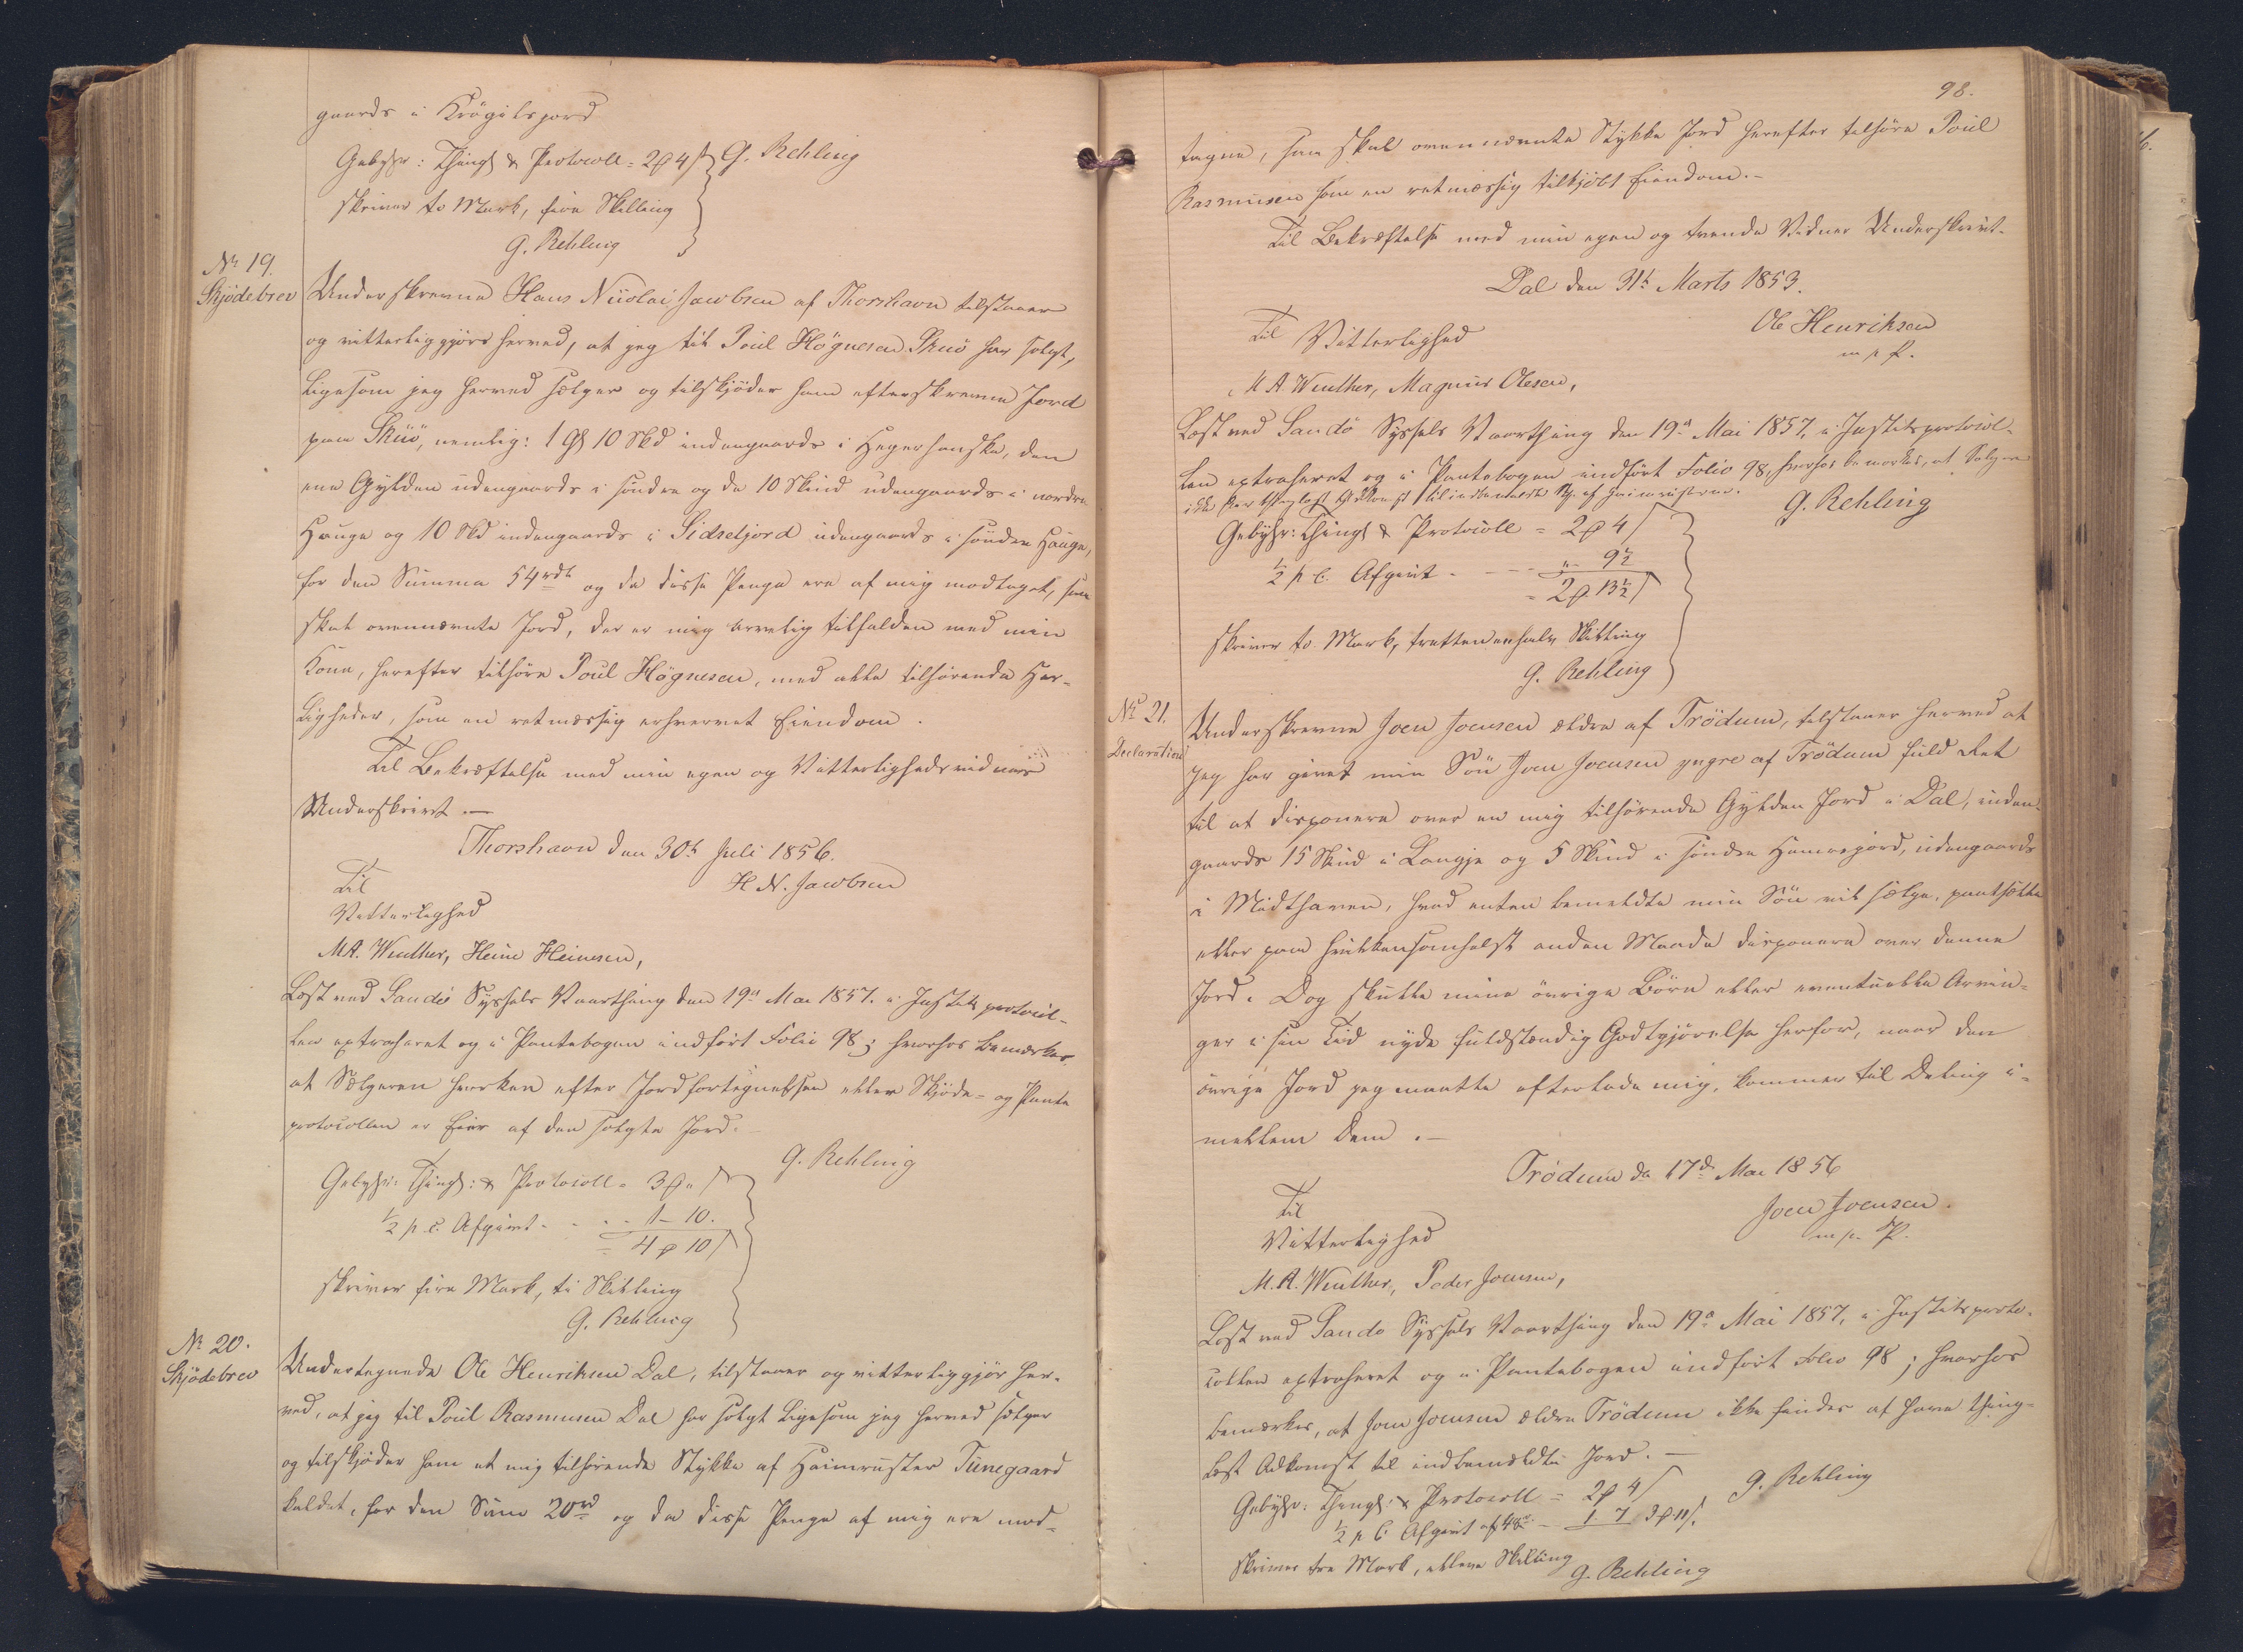 gaards i Krógilsjord
Gebyhr: Thingl & Protocoll = 2 ₰ 4 ß G. Rehling
skriver to Mark, fire Skilling
G. Rehling
No 19.
Skjödebrev
Underskrevne Hans Nicolai Jacobsen af Thorshavn tilstaaer
og vitterliggjöre herved, at jeg til Poul Högnesen Skuö har solgt,
ligesom jeg herved sælger og tilskjöder ham efterskrevne Jord
paa Skuö, nemlig: 1 Gl 10 Skd indengaards i Hegerhanske, den
ene Gylden udengaards i söndre og de 10 Skind udengaards i nordre
Hauge og 10 Skd indengaards i Sidseljord udengaards i söndre Hauge,
for den Summa 54 rdl og da disse Penge ere af mig modtaget, saa
skal ovennævnte Jord, der er mig arvelig tilfalden med min
Kone, herefter tilhöre Poul Högnesen, med alle tilhörende Her-
ligheder, som en retmæssig erhvervet Eiendom.
Til Bekræftelse med min egen og Vitterlighedsvidners
Underskrivt.—
Thorshavn den 30te Juli 1856.
H. N. Jacobsen
Til
Vitterlighed
M.A. Winther, Heine Heinesen,
Læst ved Sandö Syssels Vaarthing den 19de Mai 1857. i Justitsprotocol-
len extraheret og i Pantebogen indfört Folio 98; hvorhos bemærkes,
at Sælgeren hverken efter Jordfortegnelsen eller Skjöde- og Pante
protocollen er Eier af den solgte Jord.
G. Rehling
Gebyhr: Thingl: & Protocoll = 3 ₰ „ ß
½ p. C. Afgivt - - - 1 - 10.
= 4 ₰ 10 ß
skriver fire Mark, ti Skilling
G. Rehling
No 20.
Skjödebrev
Undertegnede Ole Henriksen Dal, tilstaaer og vitterliggjör her-
ved, at jeg til Poul Rasmusen Dal har solgt ligesom jeg herved sælger
og tilskjöder ham et mig tilhörende Stykke af Heimruster Tunegaard
kaldet, for den Sum 20 rd og da disse Penge af mig ere mod-
98.
tagne, saa skal ovennævnte Stykke Jord herefter tilhöre Poul
Rasmusen som en retmæssig tilkjöbt Eiendom.-
Til Bekræftelse med min egen og tvende Vidner Underskrivt.
Dal den 31te Marts 1853.
Ole Henriksen
m p f.
Til Vitterlighed
M A. Winther, Magnus Olesen,
Læst ved Sandö Syssels Vaarthing den 19de Mai 1857, i Justitsprotocol-
len extraheret og i Pantebogen indfört Folio 98, hvorhos bemærkes, at Sælgeren
ikke har thinglæst Adkomst til indbemeldte St. af Heimrusterne.
G. Rehling
Gebyhr: Thingl & Protocoll = 2 ₰ 4 ß
½ p. C. Afgivt - - - „ - 9½
= 2 ₰ 13½ ß
skriver to Mark, trettenenhalv Skilling
G. Rehling
No 21.
Declaration
Underskrevne Joen Joensen ældre af Tródum, tilstaaer herved at
jeg har givet min Sön Joen Joensen yngre af Tródum fuld Ret
til at disponere over en mig tilhörende Gylden Jord i Dal, inden-
gaards 15 Skind i Langje og 5 Skind i söndre Hamarjord, udengaards
i Midthaven, hvad enten bemeldte min Sön vil sælge, pantsætte
eller paa hvilkensomhelst anden Maade disponere over denne
Jord. Dog skulle mine övrige Börn eller eventuelle Arvin-
ger i sin Tid nyde fuldstændig Godtgjörelse herfor, naar den
övrige Jord jeg maatte efterlade mig, kommer til Deling i-
mellem dem.—
Tródum de 17de Mai 1856
Joen Joensen.
m p. P.
Til
Vitterlighed
M.A. Winther, Peder Joensen,
Læst ved Sandö Syssels Vaarthing den 19de Mai 1857, i Justitsproto-
collen extraheret og i Pantebogen indfört Folio 98; hvorhos
bemærkes, at Joen Joensen ældre Tródum ikke findes at have thing-
læst Adkomst til indbemeldte Jord.—
G. Rehling
Gebyhr: Thingl: & Protocoll = 2 ₰ 4 ß
½ p C. Afgivt af 48 rd - 1 7 3 ₰ 11 ß.
skriver tre Mark, elleve Skilling
G. Rehling